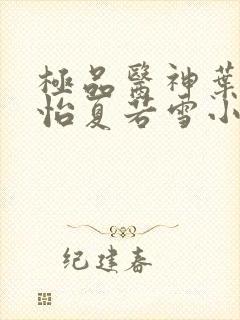 極品醫神葉
怡夏若雪小
纪建春